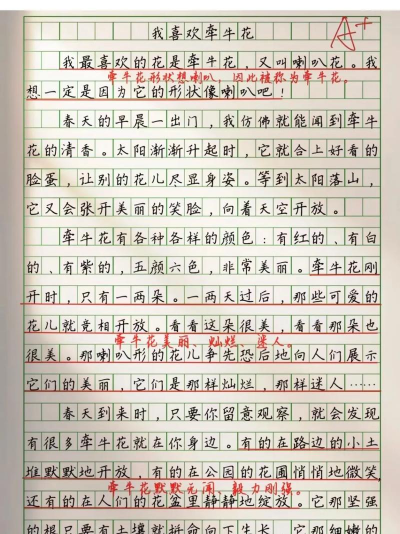 我喜欢牵牛花
A+
我最喜欢的花是牵牛花，又叫喇叭花。我
牵牛花形状想喇叭，因此被称为牵牛花。
想一定是因为它的形状像喇叭吧！
春天的早晨一出门，我仿佛就能闻到牵牛
花的清香。太阳渐渐升起时，它就合上好看的
脸蛋，让别的花儿尽显身姿。等到太阳落山，
它又会张开美丽的笑脸，向着天空开放。
牵牛花有各种各样的颜色：有红的、有白
的、有紫的，五颜六色，非常美丽。牵牛花刚
开时，只有一两朵。一两天过后，那些可爱的
花儿就竞相开放。看看这朵很美，看看那朵也
牵牛花美丽、灿烂、迷人。
很美。那喇叭形的花儿争先恐后地向人们展示
它们的美丽，它们是那样灿烂，那样迷人……
春天到来时，只要你留意观察，就会发现
有很多牵牛花就在你身边。有的在路边的小土
堆默默地开放，有的在公园的花圃悄悄地微笑，
还有的在人们的花盆里静静地绽放。它那坚强
牵牛花默默无闻、毅力刚强。
的根只要有土壤就拼命向下生长，它那细嫩的